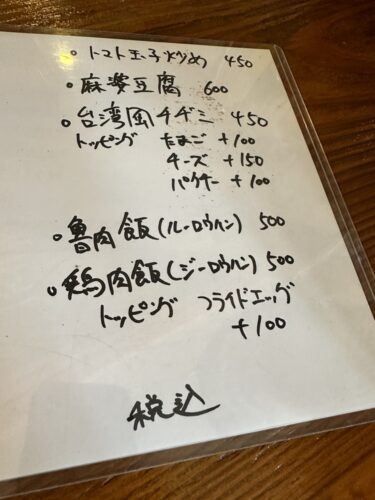 ・トマト玉子炒め 450
・麻婆豆腐 600
・台湾風チヂミ 450
トッピング たまご +100
チーズ +150
パクチー +100
・魯肉飯(ルーロウハン) 500
・鶏肉飯(ジーロウハン) 500
トッピング フライドエッグ
+100
税込